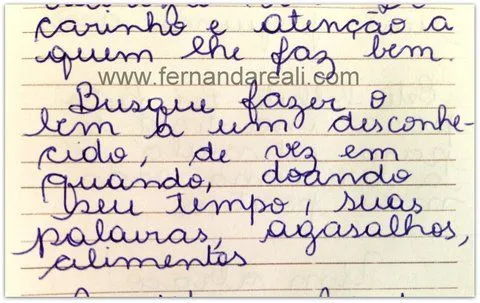 carinho e atenção a
quem lhe faz bem.
www.fernandareali.com
Busque fazer o
bem a um desconhe-
cido, de vez em
quando, doando
seu tempo, suas
palavras, agasalhos,
alimentos